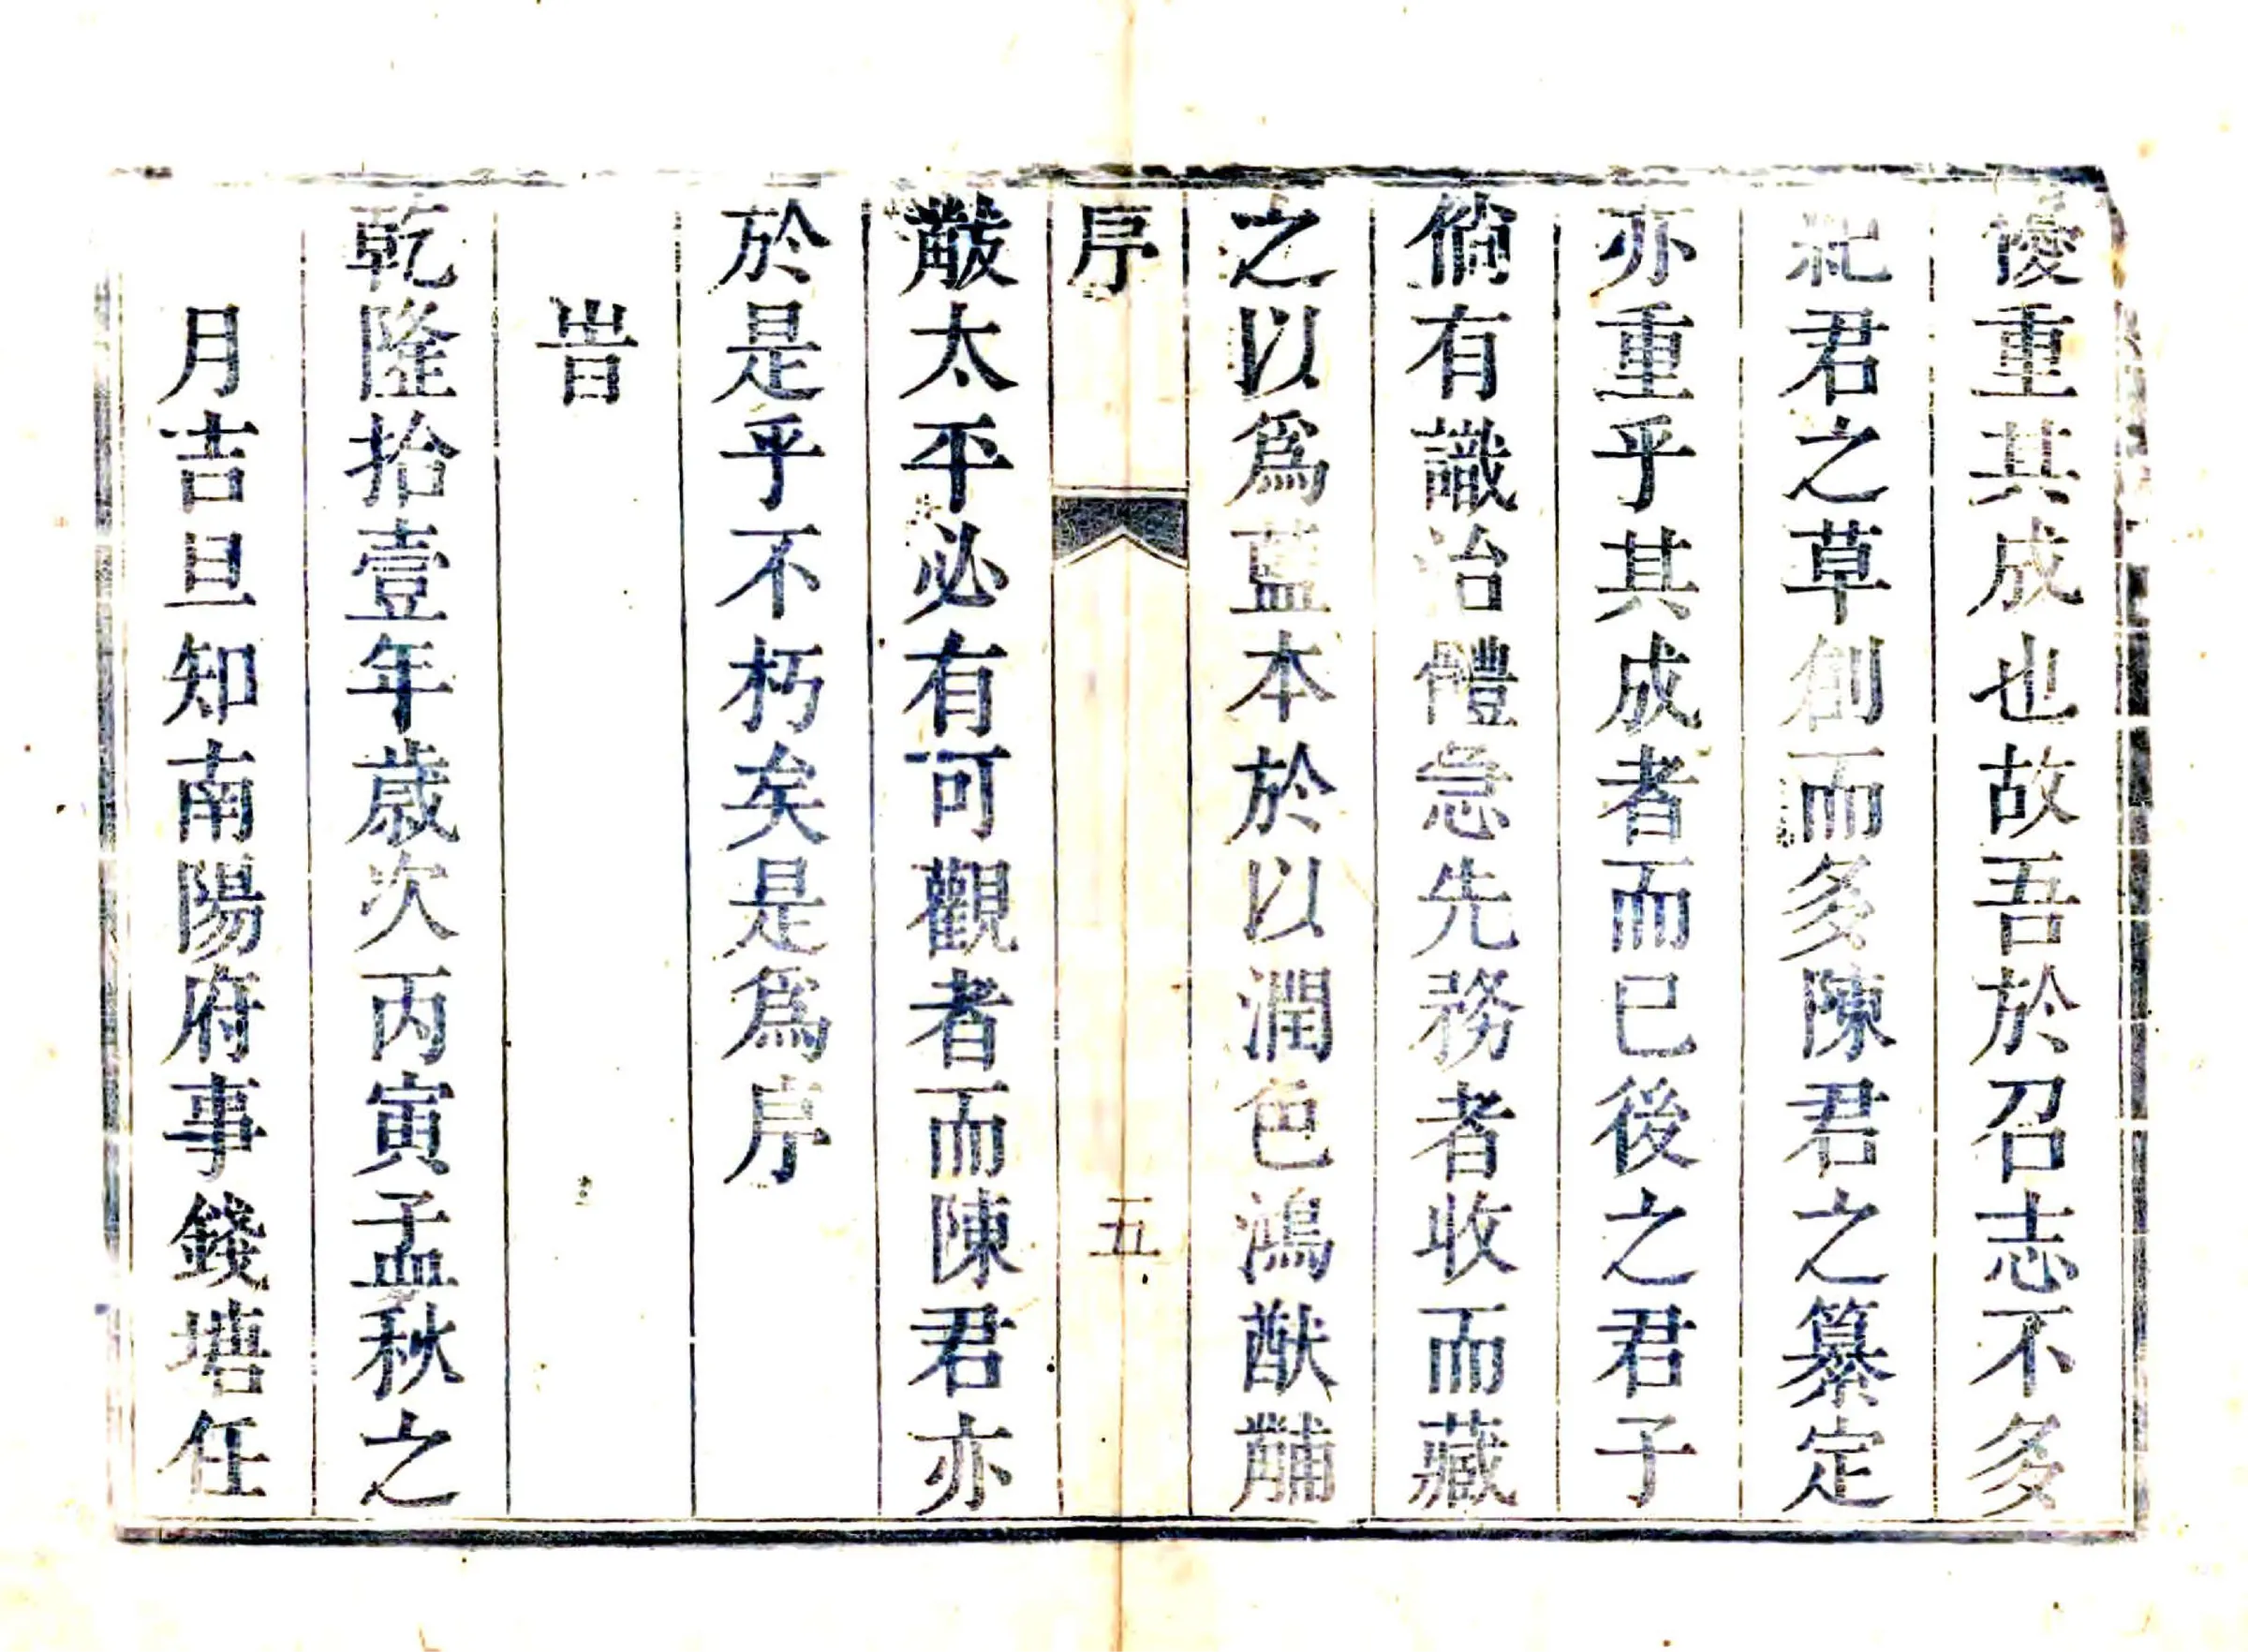 優重其成也故吾於召志不多
紀君之草創而多陳君之纂定
亦重乎其成者而已後之君子
倘有識治體急先務者收而藏
之以爲藍本於以潤色鴻猷黼
序
五
黻太平必有可觀者而陳君亦
於是乎不朽矣是爲序
旹
乾隆拾壹年歲次丙寅孟秋之
月吉旦知南陽府事錢塘任